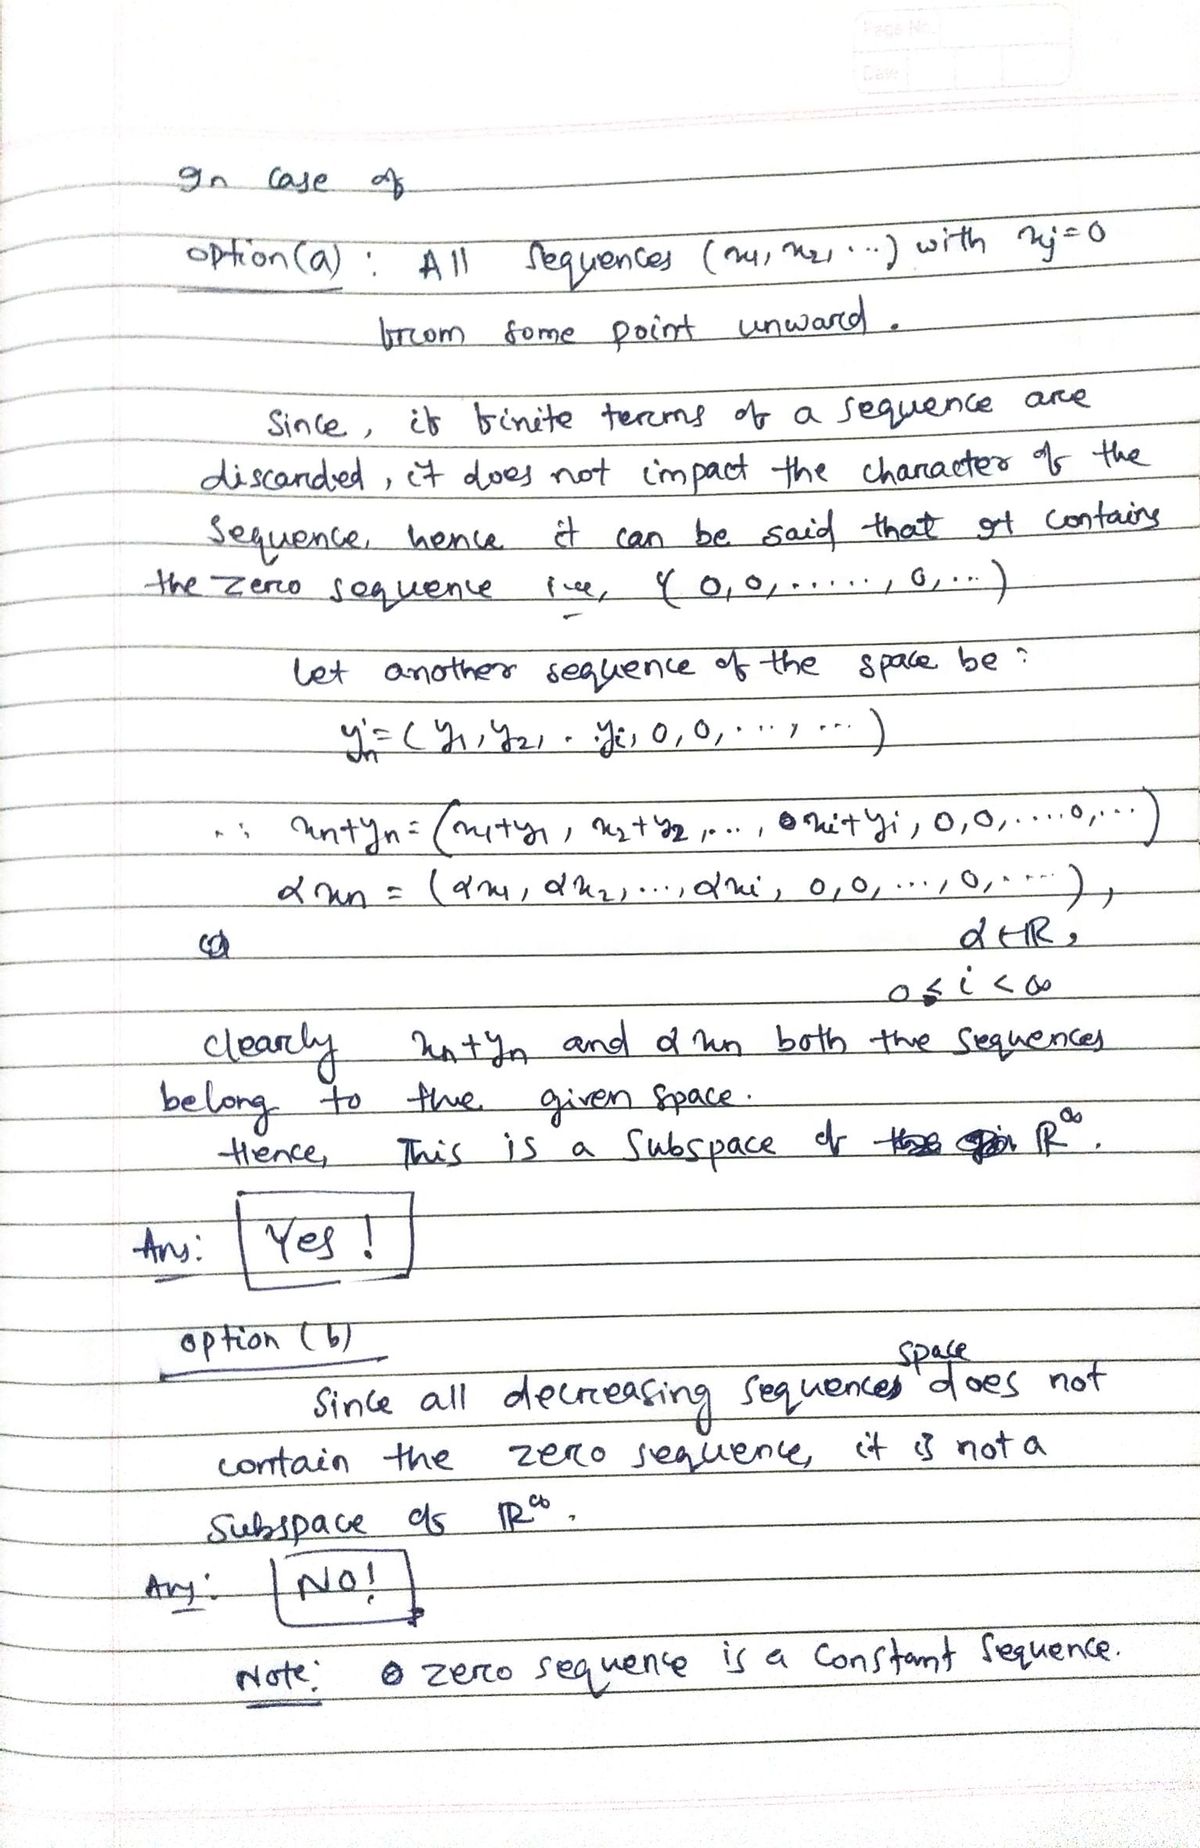 Page No.
Date
In case of
option(a) : All sequences (x₁, x₂, ...) with xj=0
from some point unward.
Since, if finite terms of a sequence are
discarded, it does not impact the character of the
sequence, hence it can be said that it contains
the zero sequence i.e, ( 0, 0, ......, 0, ...)
Let another sequence of the space be :
yₙ = ( y₁, y₂, . . yᵢ, 0, 0, ..., ... )
∴ xₙ+yₙ = (x₁+y₁, x₂+y₂, ..., xᵢ+yᵢ, 0, 0, .....0, ...)
αxₙ = (αx₁, αx₂, ..., αxᵢ, 0, 0, ..., 0, ....),
α∈ℝ,
0 ≤ i < ∞
clearly xₙ+yₙ and αxₙ both the sequences
belong to the given space.
Hence, This is a subspace of ℝ^∞.
Ans: Yes !
option (b)
Since all decreasing sequences space does not
contain the zero sequence, it is not a
subspace of ℝ^∞.
Ans: NO!
Note: zero sequence is a constant sequence.